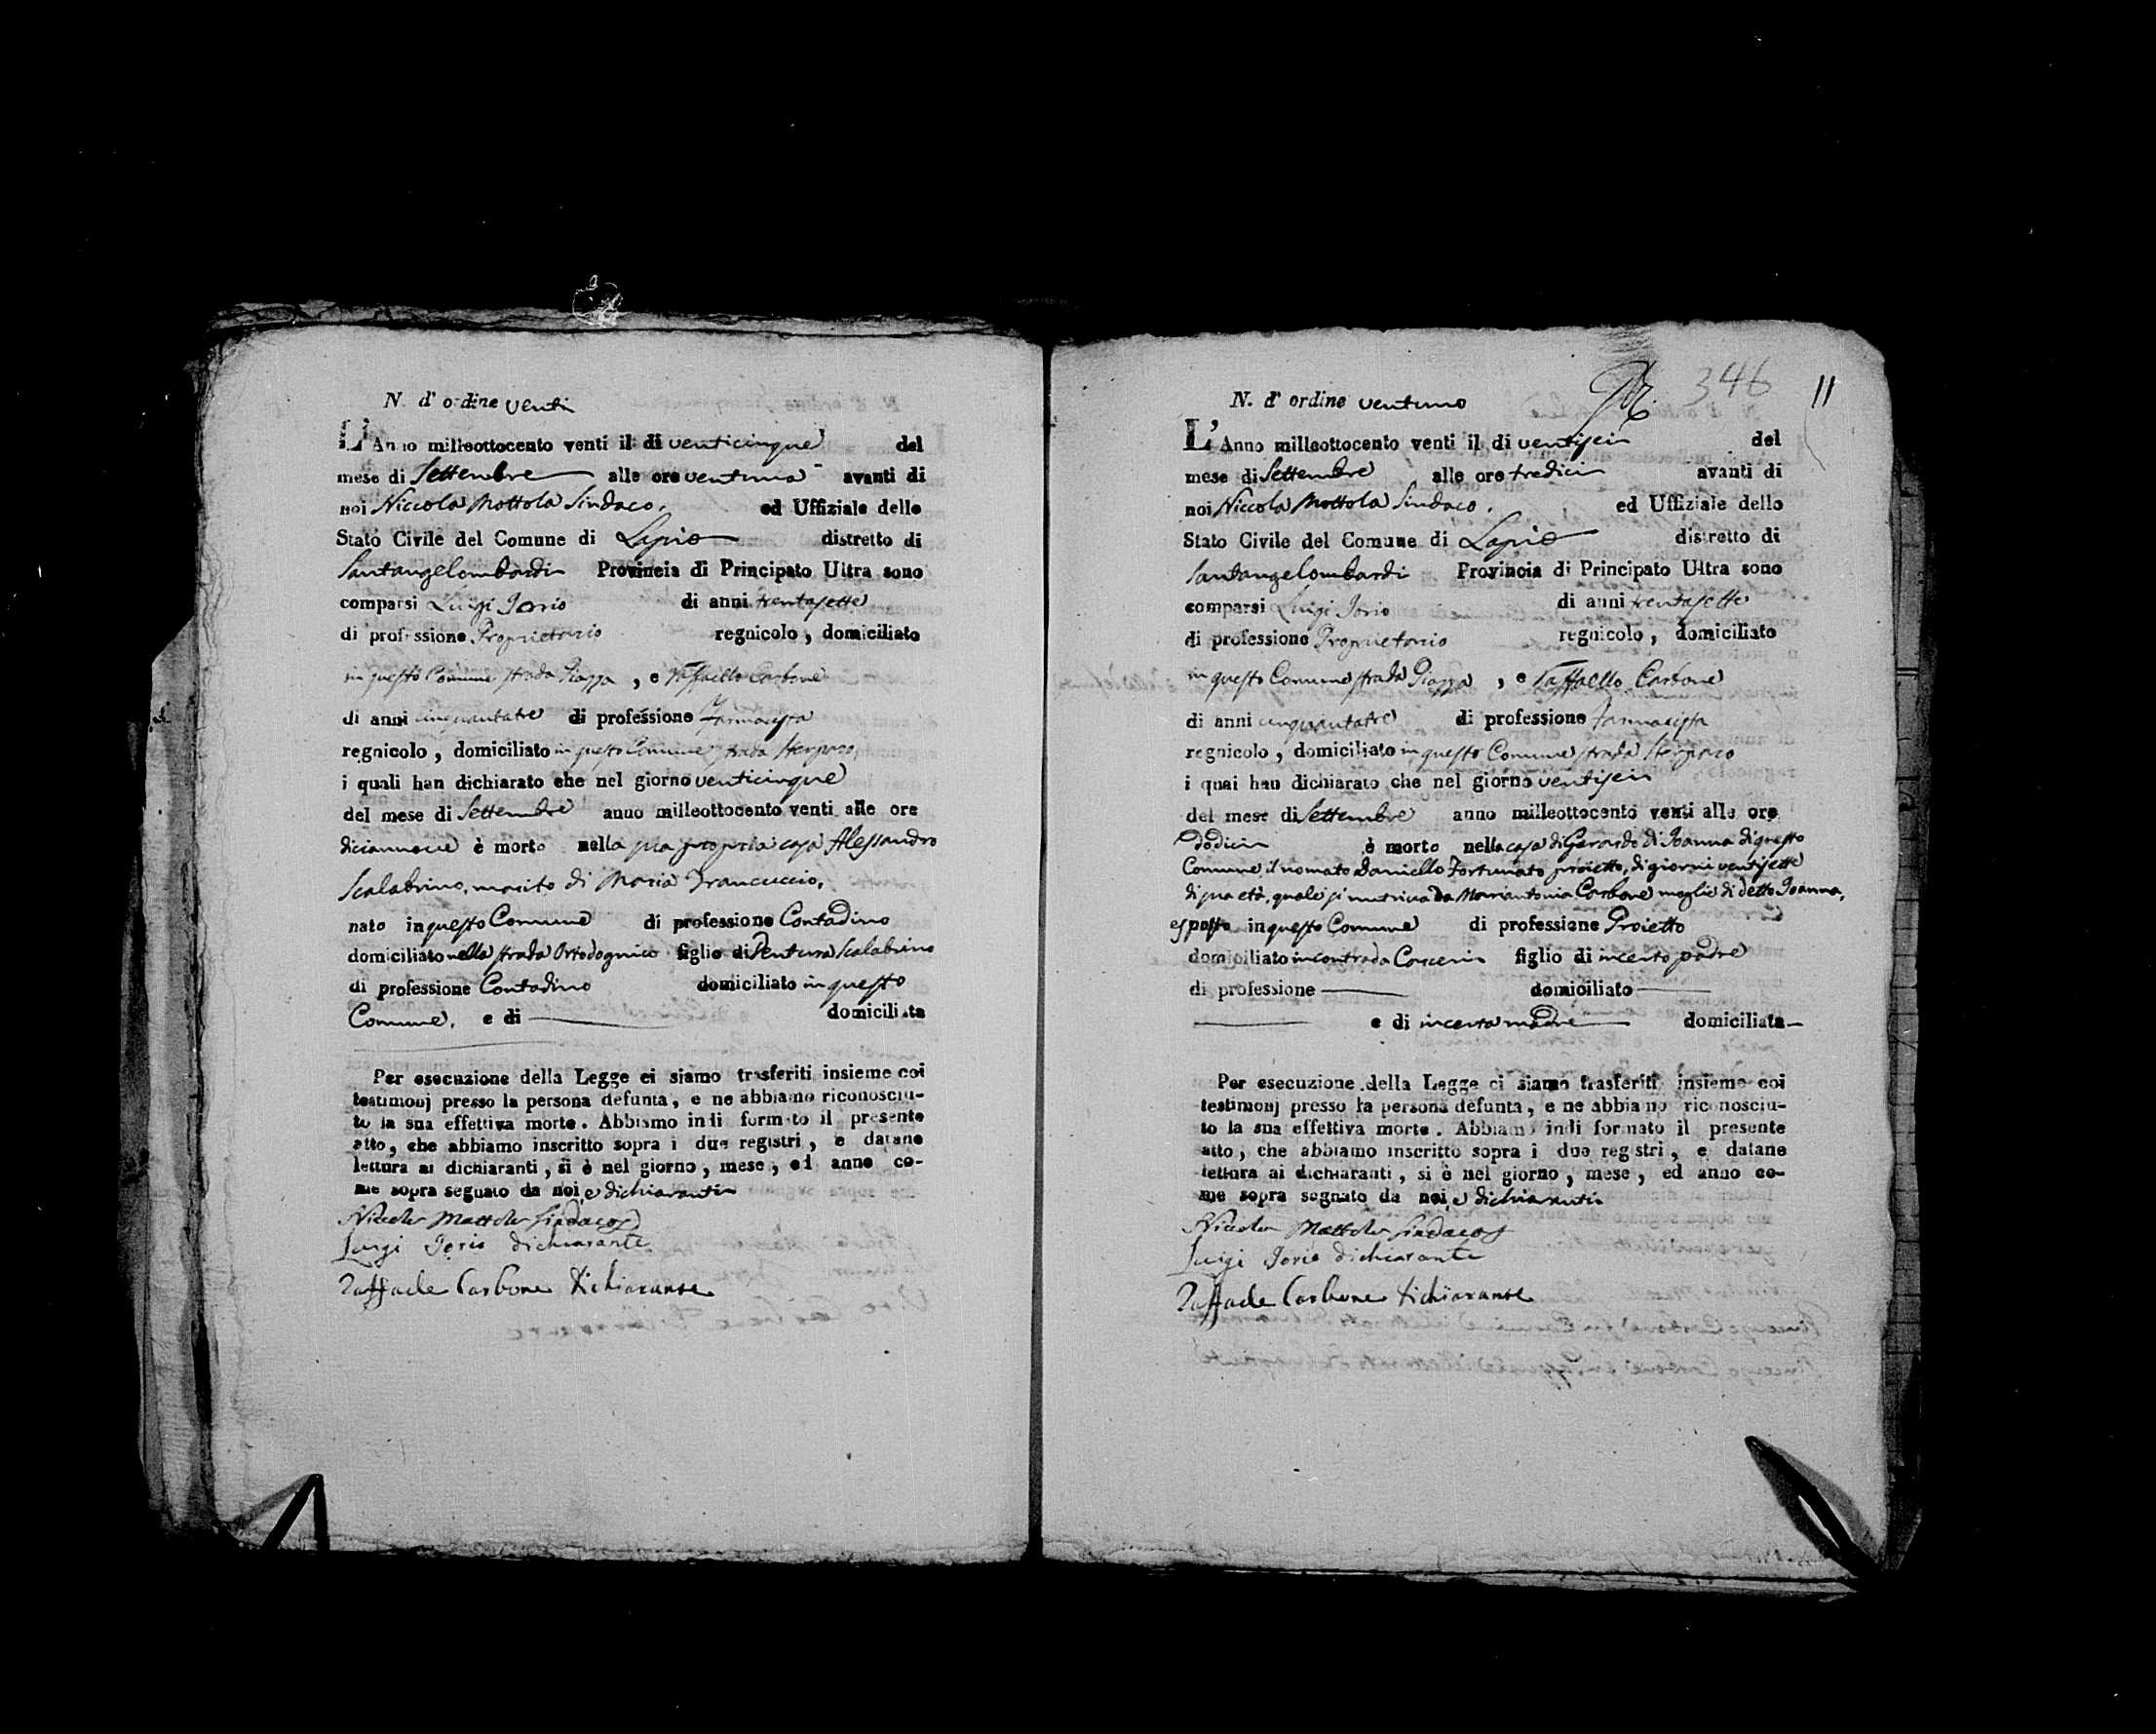 N. d' ordine venti
L'Anno milleottocento venti il di venticinque del
mese di Settembre alle ore ventuna avanti di
noi Niccola Mottola Sindaco, ed Uffiziale dello
Stato Civile del Comune di Lapio distretto di
Santangelombardi Provincia di Principato Ultra sono
comparsi Luigi Iorio di anni trentasette
di professione Proprietario regnicolo, domiciliato
in questo Comune strada Piazza, e Raffaello Carbone
di anni cinquantatre di professione Farmacista
regnicolo, domiciliato in questo Comune strada
i quali han dichiarato che nel giorno venticinque
del mese di Settembre anno milleottocento venti alle ore
diciannove è morto nella sua propria casa Alessandro
Scalabrino, marito di Maria Francuccio,
nato in questo Comune di professione Contadino
domiciliato nella strada figlio di Ventura Scalabrino
di professione Contadino domiciliato in questo
Comune, e di domiciliata
Per esecuzione della Legge ci siamo trasferiti insieme coi
testimonj presso la persona defunta, e ne abbiamo riconosciu-
to la sua effettiva morte. Abbiamo indi formato il presente
atto, che abbiamo inscritto sopra i due registri, e datane
lettura ai dichiaranti, si è nel giorno, mese, ed anno co-
me sopra segnato da noi, e dichiaranti
Niccola Mottola Sindaco
Luigi Iorio dichiarante
Raffaele Carbone dichiarante
346 11
N. d' ordine ventuno
L'Anno milleottocento venti il di ventisei del
mese di Settembre alle ore tredici avanti di
noi Niccola Mottola Sindaco, ed Uffiziale dello
Stato Civile del Comune di Lapio distretto di
Santangelombardi Provincia di Principato Ultra sono
comparsi Luigi Iorio di anni trentasette
di professione Proprietario regnicolo, domiciliato
in questo Comune strada Piazza, e Raffaello Carbone
di anni cinquantatre di professione Farmacista
regnicolo, domiciliato in questo Comune strada
i quai han dichiarato che nel giorno ventisei
del mese di Settembre anno milleottocento venti alle ore
dodici è morto nella casa di Gerardo di Ioanna di questo
Comune, il nomato Daniello Fortunato proietto, di giorni ventisette
di sua età, quale si nutriva da Mariantonia Carbone moglie di detto Ioanna,
esposto in questo Comune di professione Proietto
domiciliato in contrada figlio di incerto padre
di professione domiciliato
e di incerta madre domiciliata
Per esecuzione della Legge ci siamo trasferiti insieme coi
testimonj presso la persona defunta, e ne abbiamo riconosciu-
to la sua effettiva morte. Abbiamo indi formato il presente
atto, che abbiamo inscritto sopra i due registri, e datane
lettura ai dichiaranti, si è nel giorno, mese, ed anno co-
me sopra segnato da noi, e dichiaranti
Niccola Mottola Sindaco
Luigi Iorio dichiarante
Raffaele Carbone dichiarante